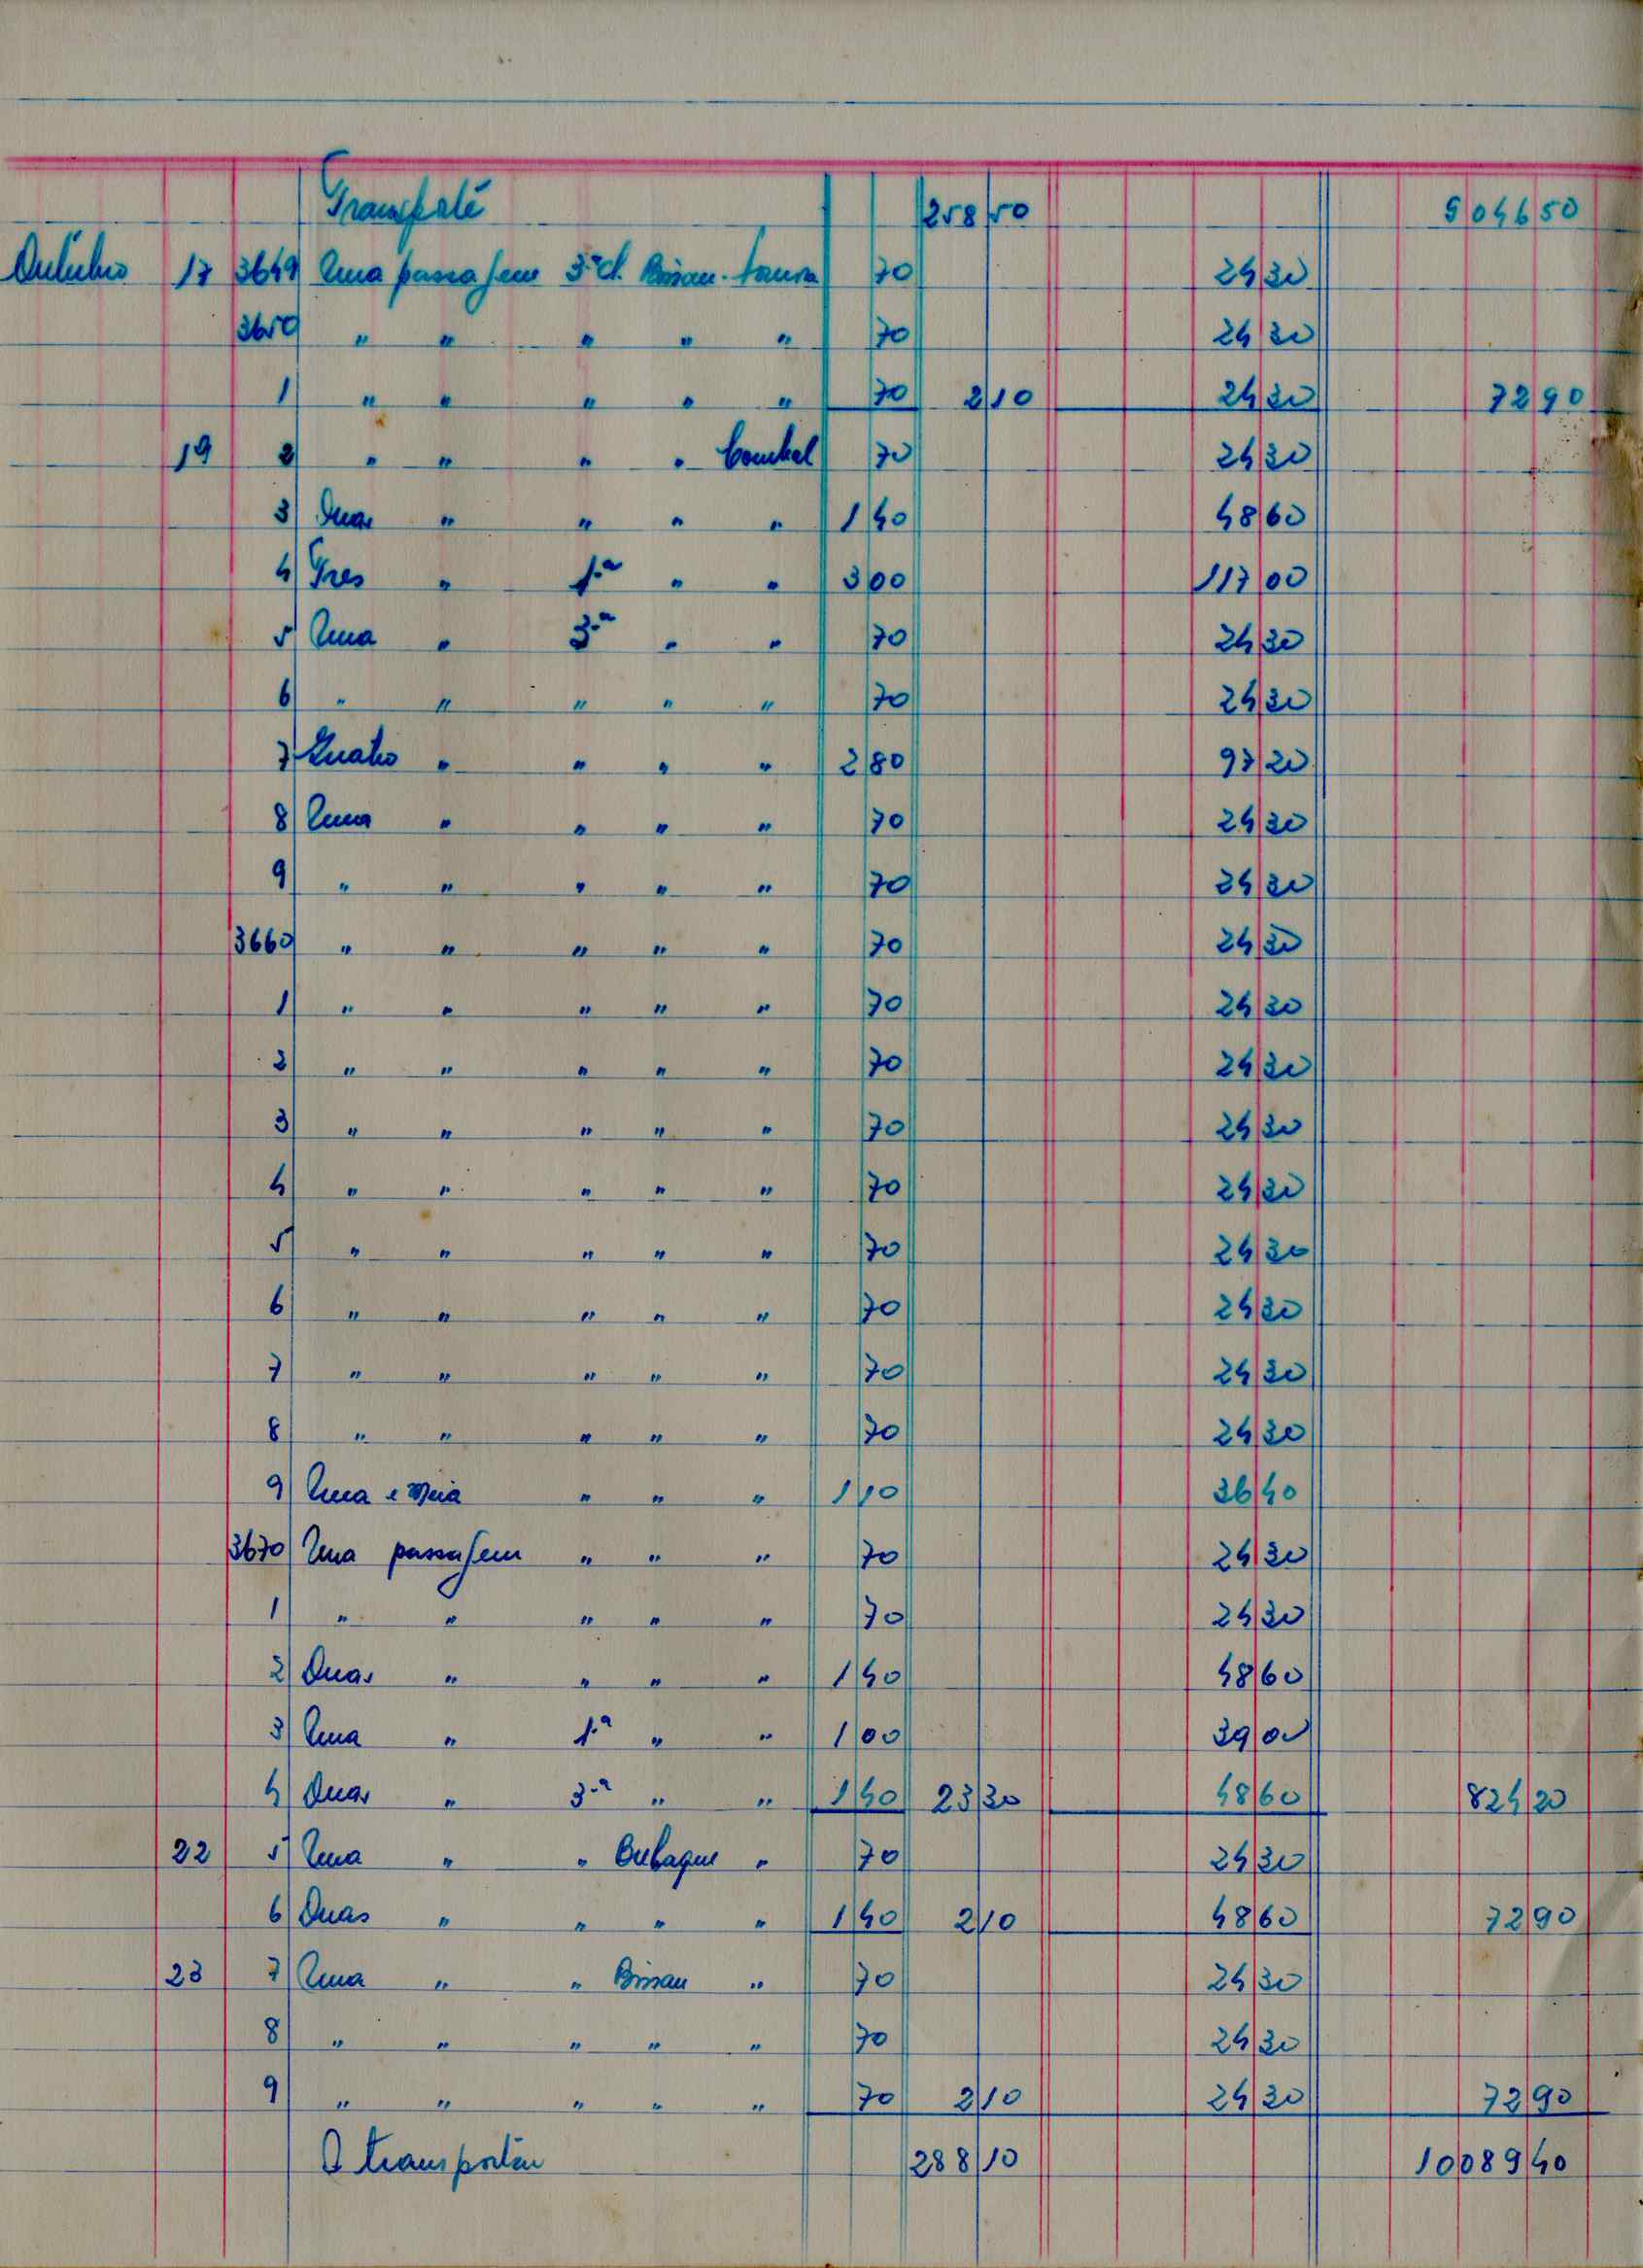 Transporte 258 50 9046 50
Outubro 17 3649 Uma passagem 3ª cl. Bissau- 70 24 30
3650 " " " " " 70 24 30
1 " " " " " 70 2 10 24 30 72 90
19 2 " " " " 70 24 30
3 Duas " " " " 1 40 48 60
4 Tres " 1.ª " " 3 00 117 00
5 Uma " 3.ª " " 70 24 30
6 " " " " " 70 24 30
7 Quatro " " " " 2 80 97 20
8 Uma " " " " 70 24 30
9 " " " " " 70 24 30
3660 " " " " " 70 24 30
1 " " " " " 70 24 30
2 " " " " " 70 24 30
3 " " " " " 70 24 30
4 " " " " " 70 24 30
5 " " " " " 70 24 30
6 " " " " " 70 24 30
7 " " " " " 70 24 30
8 " " " " " 70 24 30
9 Uma e Meia " " " 1 10 36 40
3670 Uma passagem " " " 70 24 30
1 " " " " " 70 24 30
2 Duas " " " " 1 40 48 60
3 Uma " 1.ª " " 1 00 39 00
4 Duas " 3.ª " " 1 40 23 30 48 60 824 20
22 5 Uma " " Bubaque " 70 24 30
6 Duas " " " " 1 40 2 10 48 60 72 90
23 7 Uma " " Bissau " 70 24 30
8 " " " " " 70 24 30
9 " " " " " 70 2 10 24 30 72 90
A transportar 288 10 10089 40